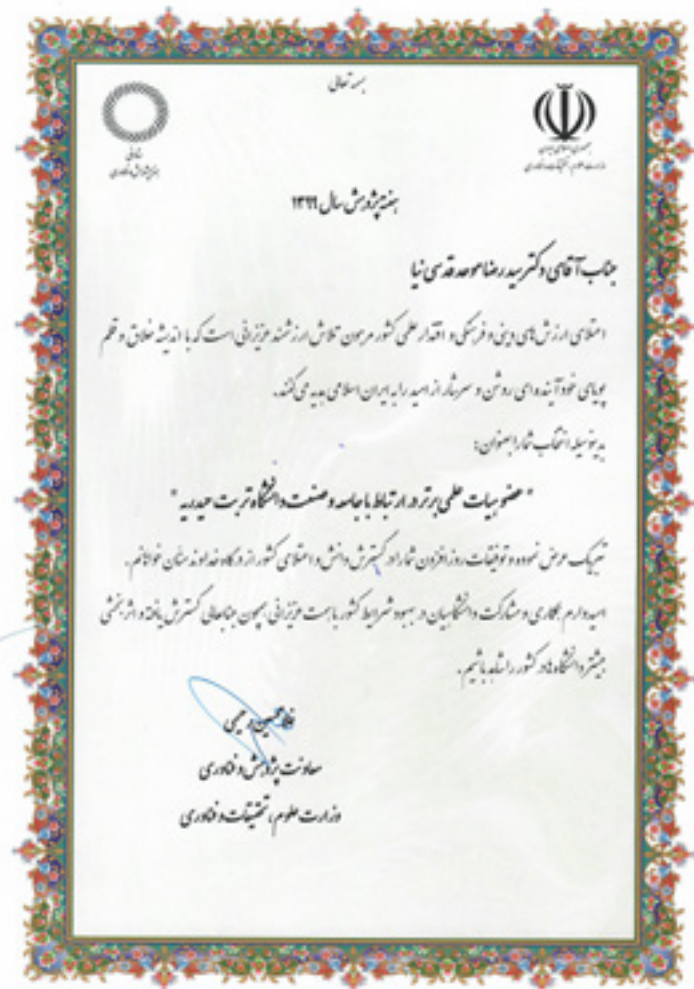 بسمه تعالی
جمهوری اسلامی ایران
وزارت علوم، تحقیقات و فناوری
هفته پژوهش سال ۱۳۹۹
جناب آقای دکتر سید رضا موحد قدسی نیا
اعتلای ارزش های دینی و فرهنگی و اقتدار علمی کشور مرهون تلاش ارزشمند عزیزانی است که با اندیشه خلاق و قلم
پویای خود آینده ای روشن و سرشار از امید را به ایران اسلامی هدیه می کنند.
بدینوسیله انتخاب شما را بعنوان:
" عضو هیات علمی برتر در ارتباط با جامعه و صنعت دانشگاه تربت حیدریه "
تبریک عرض نموده و توفیقات روز افزون شما را در گسترش دانش و اعتلای کشور از درگاه خداوند منان خواهانم.
امیدوارم همکاری و مشارکت دانشگاهیان در بهبود شرایط کشور با همت عزیزانی همچون جنابعالی گسترش یافته و اثربخشی
بیشتر دانشگاه ها در کشور را شاهد باشیم.
غلامحسین رحیمی
معاونت پژوهش و فناوری
وزارت علوم، تحقیقات و فناوری